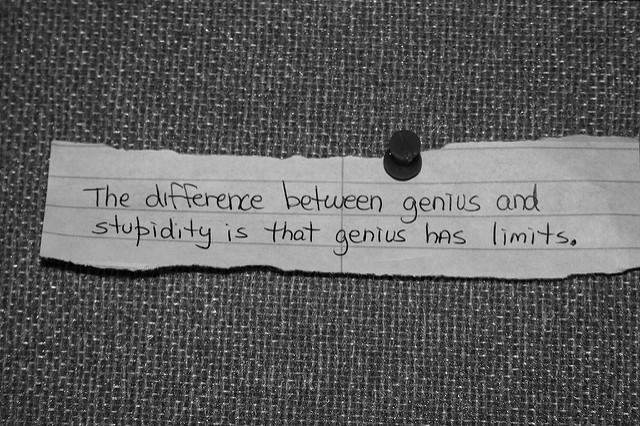 The difference between genius and
stupidity is that genius has limits.